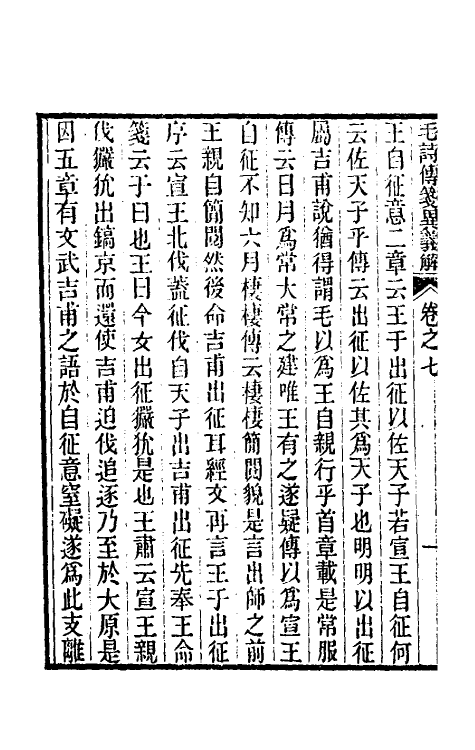 毛詩傳箋異義解 卷之七 一
王自征意二章云王于出征以佐天子若宣王自征何
云佐天子乎傳云出征以佐其爲天子也明明以出征
屬吉甫說猶得謂毛以爲王自親行乎首章載是常服
傳云日月爲常大常之建唯王有之遂疑傳以爲宣王
自征不知六月棲棲傳云棲棲簡閱貌是言出師之前
王親自簡閱然後命吉甫出征耳經文再言王于出征
序云宣王北伐蓋征伐自天子出吉甫出征先奉王命
箋云于曰也王曰今女出征玁狁是也王肅云宣王親
伐玁狁出鎬京而還使吉甫迫伐追逐乃至於大原是
因五章有文武吉甫之語於自征意窒礙遂爲此支離